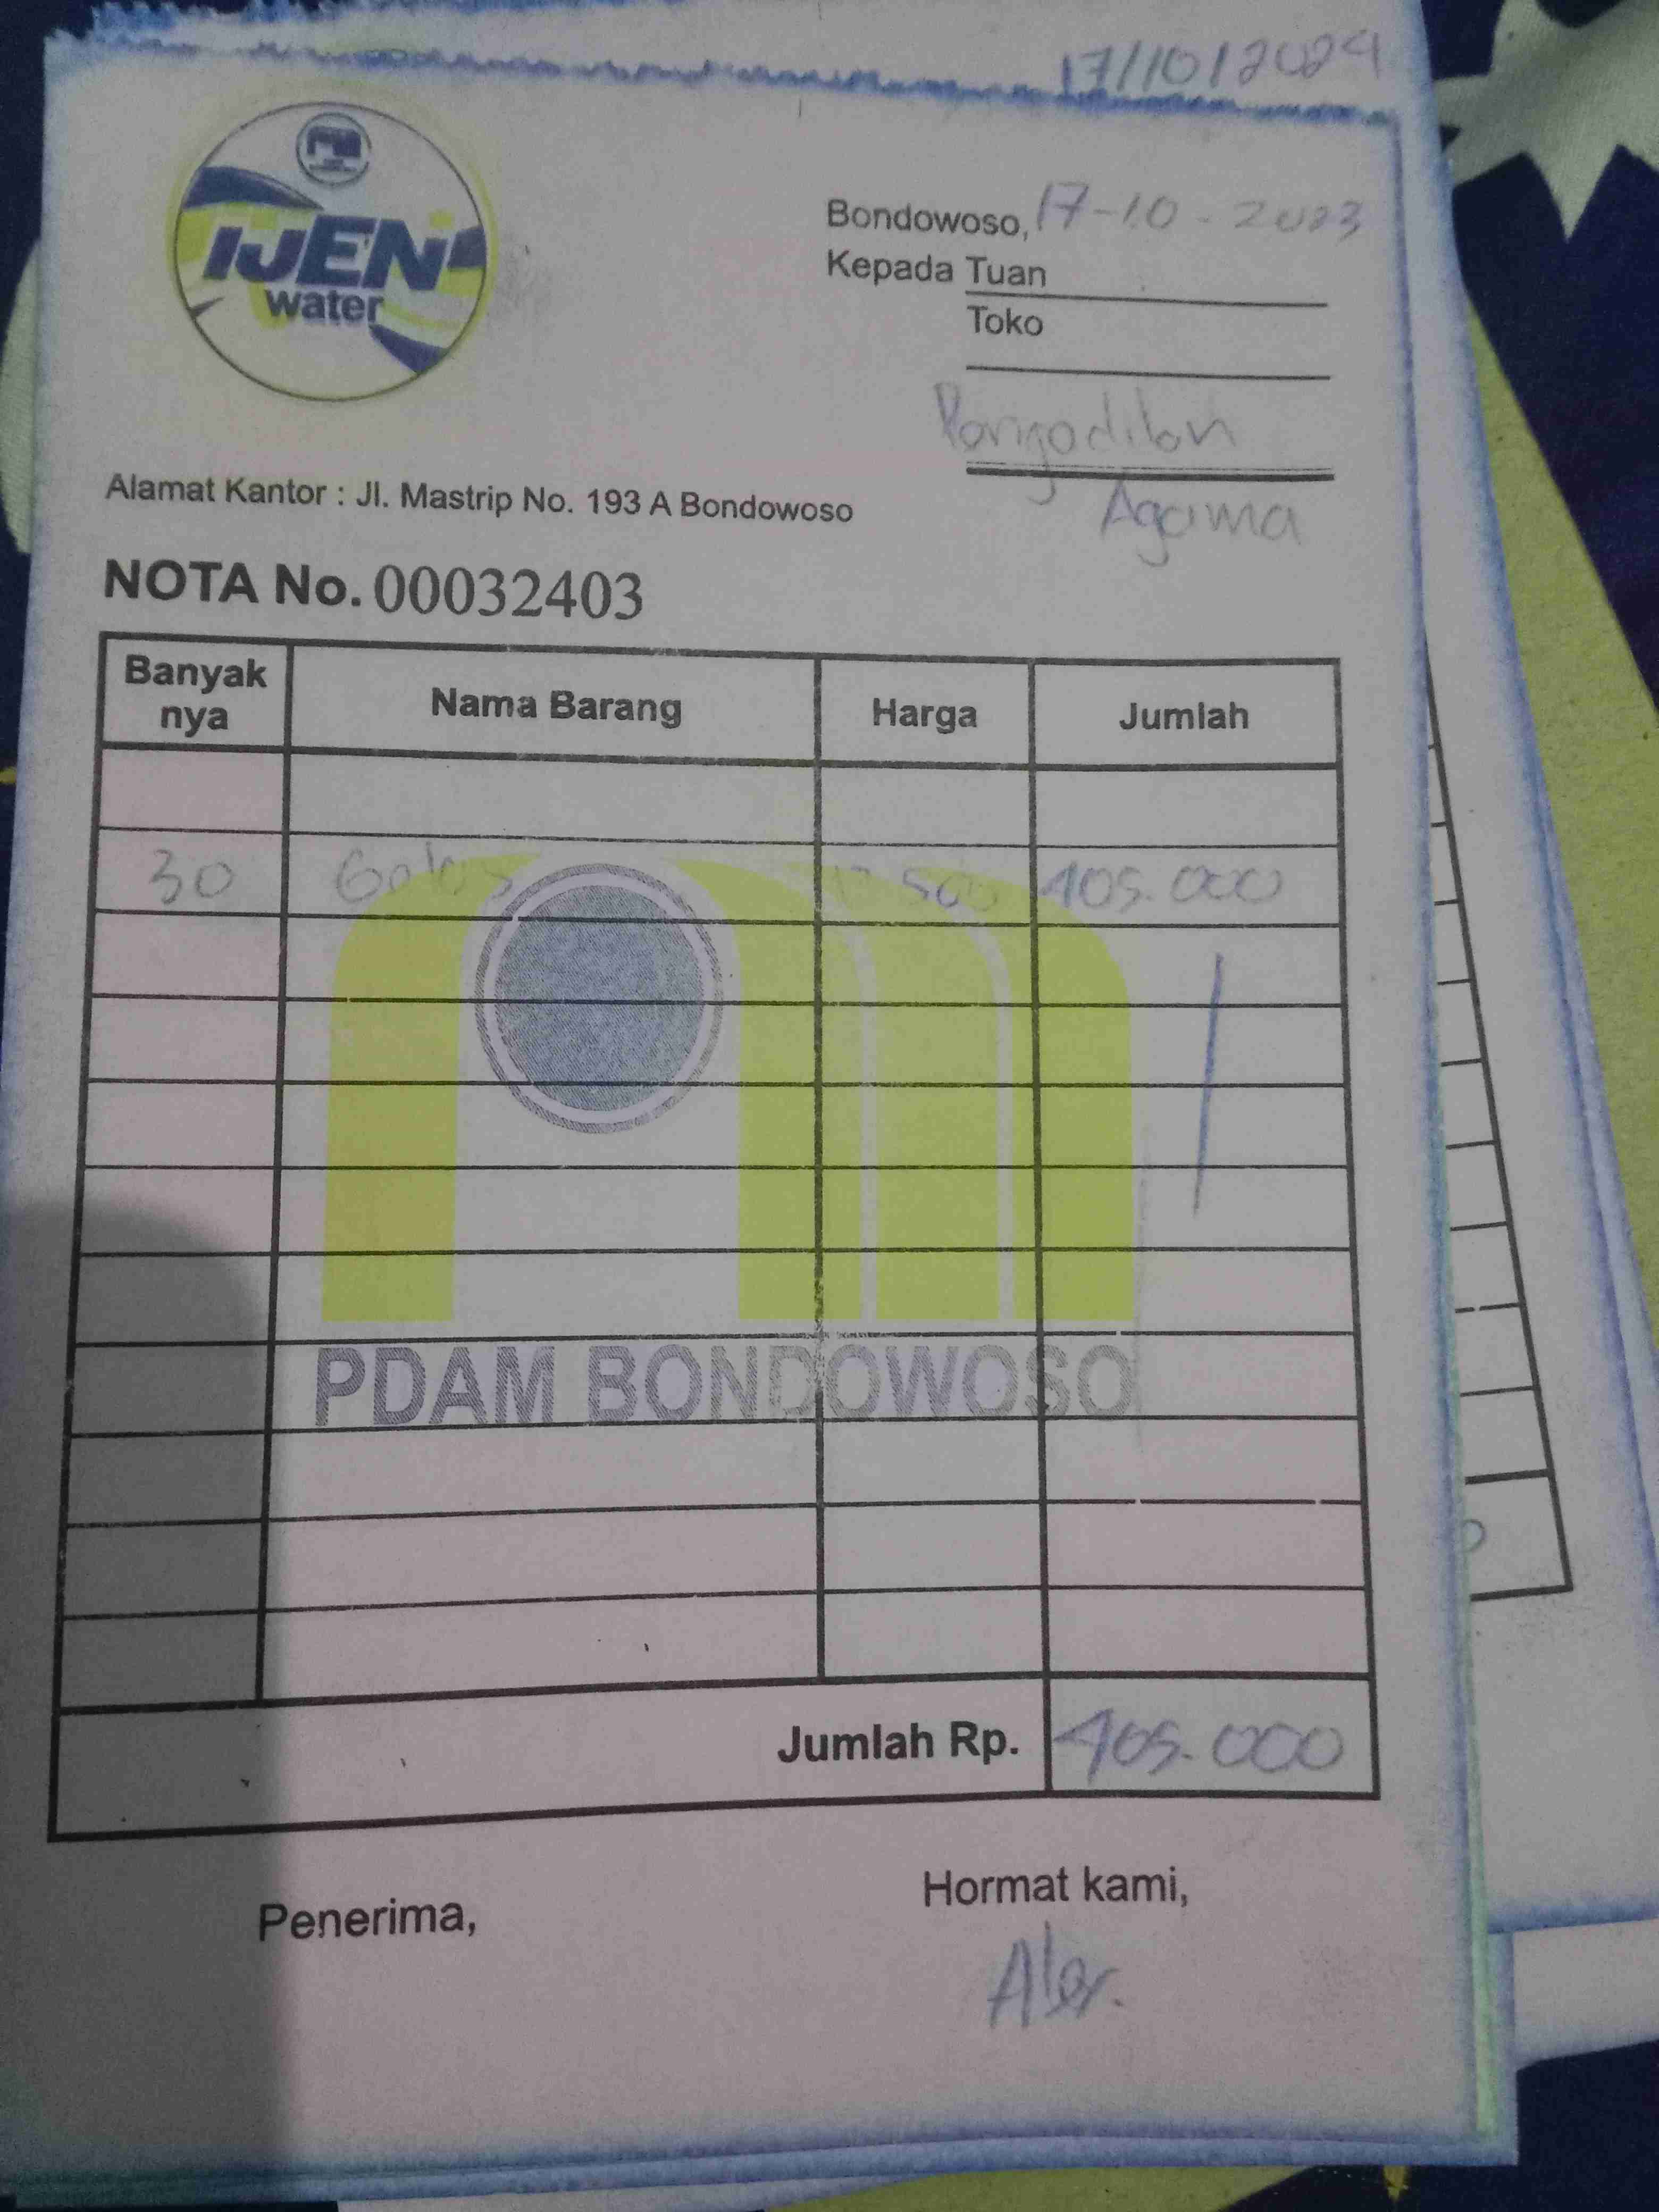 17/10/2024
IJEN
water
Bondowoso, 17-10-2023
Kepada Tuan
Toko
Pengadilan
Agama
Alamat Kantor : Jl. Mastrip No. 193 A Bondowoso
NOTA No. 00032403
Banyak nya Nama Barang Harga Jumlah
30 Galon 500 405.000
PDAM BONDOWOSO
Jumlah Rp. 405.000
Penerima, Hormat kami,